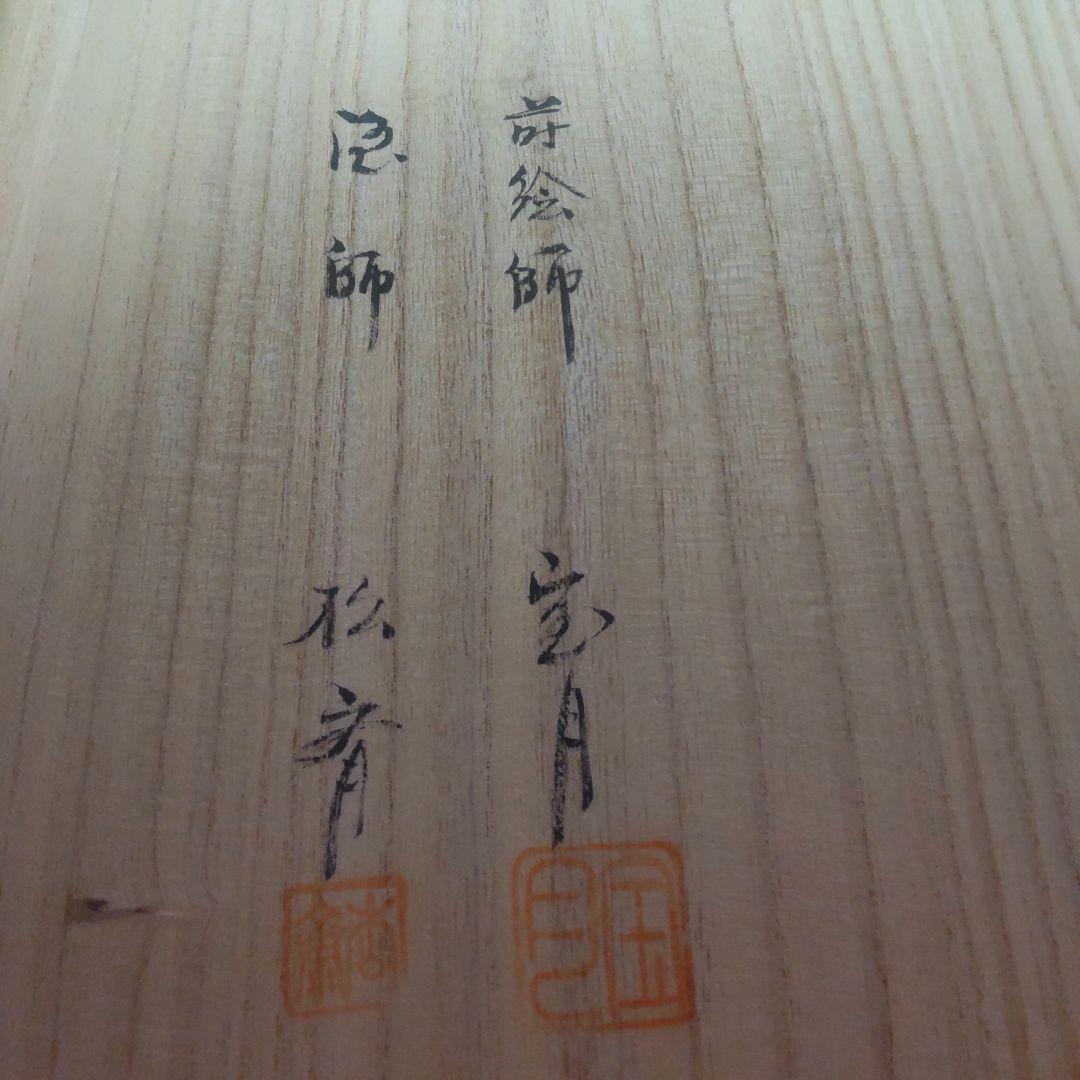 蒔絵師 宝月
塗師 松斎
宝月